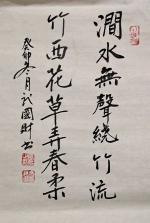 澗水無聲繞竹流
竹西花草弄春柔
癸卯冬月 國財書